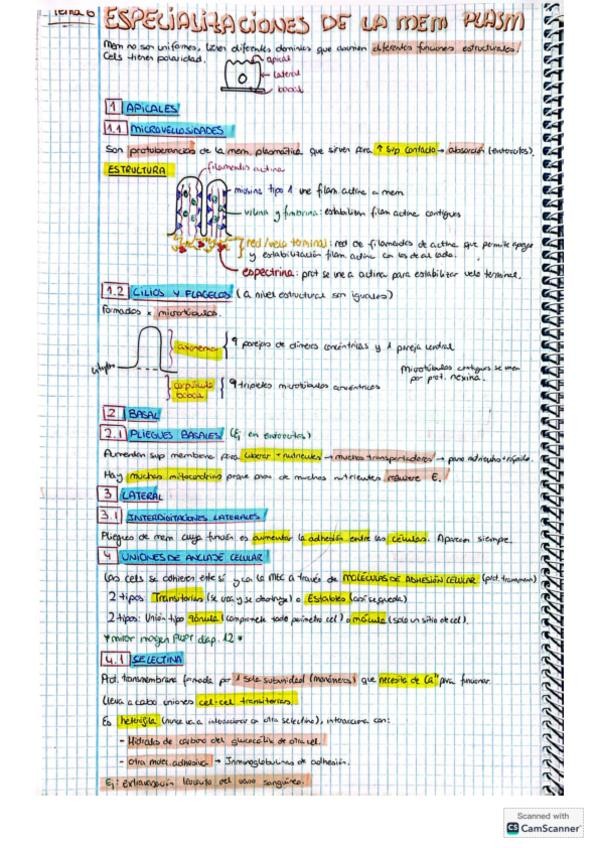 Tema 6 ESPECIALIZACIONES DE LA MEM PLASM
Mem no son uniformes, tienen diferentes dominios que asumen diferentes funciones estructurales.
Cels tienen polaridad.
apical
lateral
basal
1 APICALES
1.1 MICROVELLOSIDADES
Son protuberancias de la mem. plasmática que sirven para ↑ sup contacto → absorción (enterocitos).
ESTRUCTURA
filamentos actina
miosina tipo 1 une filam actina a mem
vilina y fimbrina: estabilizan filam actina contiguos
red/velo terminal: red de filamentos de actina que permite apoyar
y estabilización filam actina con los de al lado.
espectrina: prot se une a actina para estabilizar velo terminal.
1.2 CILIOS Y FLAGELOS (a nivel estructural son iguales)
Formados x microtúbulos.
axonema { 9 parejas de dímeros concéntricas y 1 pareja central
Microtúbulos contiguos se unen
por prot. nexina.
corpúsculo basal { 9 tripletes microtúbulos concéntricos
2 BASAL
2.1 PLIEGUES BASALES (Ej en enterocitos)
Aumentan sup membrana para liberar + nutrientes → muchos transportadores → paso nutrientes + rápido.
Hay muchas mitocondrias porque paso de muchos nutrientes requiere E.
3 LATERAL
3.1 INTERDIGITACIONES LATERALES
Pliegues de mem cuya función es aumentar la adhesión entre las células. Aparecen siempre.
4 UNIONES DE ANCLAJE CELULAR
Las cels se adhieren entre sí y con la MEC a través de MOLÉCULAS DE ADHESIÓN CELULAR (prot. transmem)
2 tipos: Transitorias (se une y se despega) o Estables (así se queda)
2 tipos: Unión tipo zónula (comprende todo perímetro cel) o mácula (solo un sitio de cel).
* mirar imagen PWPT diap. 12 *
4.1 SELECTINA
Prot. transmembrana formada por 1 sola subunidad (monómeros) que necesita de Ca²⁺ para funcionar.
Lleva a cabo uniones cel-cel transitorias
Es heterófila (nunca va a interaccionar con otra selectina), interacciona con:
- Hidratos de carbono del glucocálix de otra cel.
- otra molec. adhesiva → Inmunoglobulinas de adhesión.
Ej: extravasación leucocito del vaso sanguíneo.
Scanned with
CS CamScanner